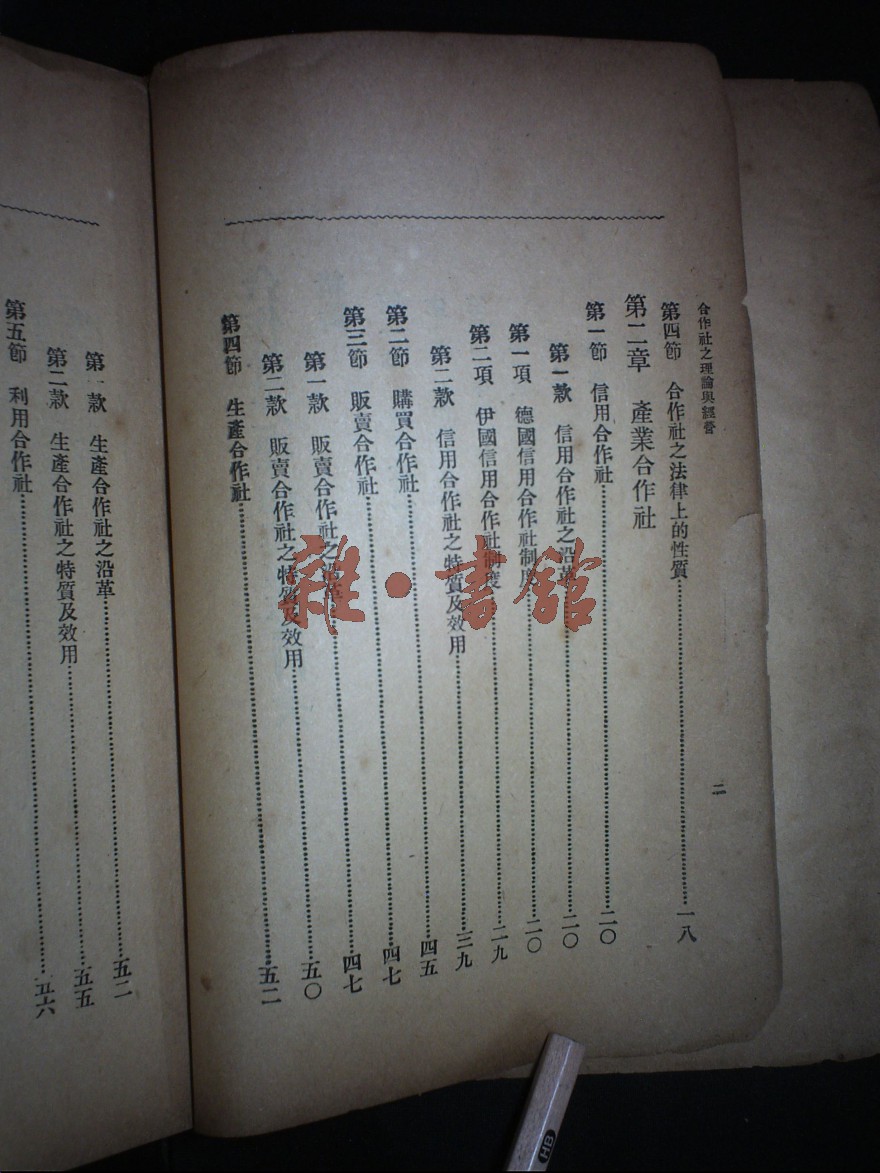 合作社之理論與經營
二
第四節 合作社之法律上的性質……一八
第二章 產業合作社
第一節 信用合作社……二〇
第一款 信用合作社之沿革……二〇
第一項 德國信用合作社制度……二〇
第二項 伊國信用合作社制度……二九
第二款 信用合作社之特質及效用……三九
第二節 購買合作社……四五
第三節 販賣合作社……四七
第一款 販賣合作社之沿革……四七
第二款 販賣合作社之特質及效用……五〇
第四節 生產合作社……五二
第一款 生產合作社之沿革……五二
第二款 生產合作社之特質及效用……五五
第五節 利用合作社……五六
雜·書館
HB